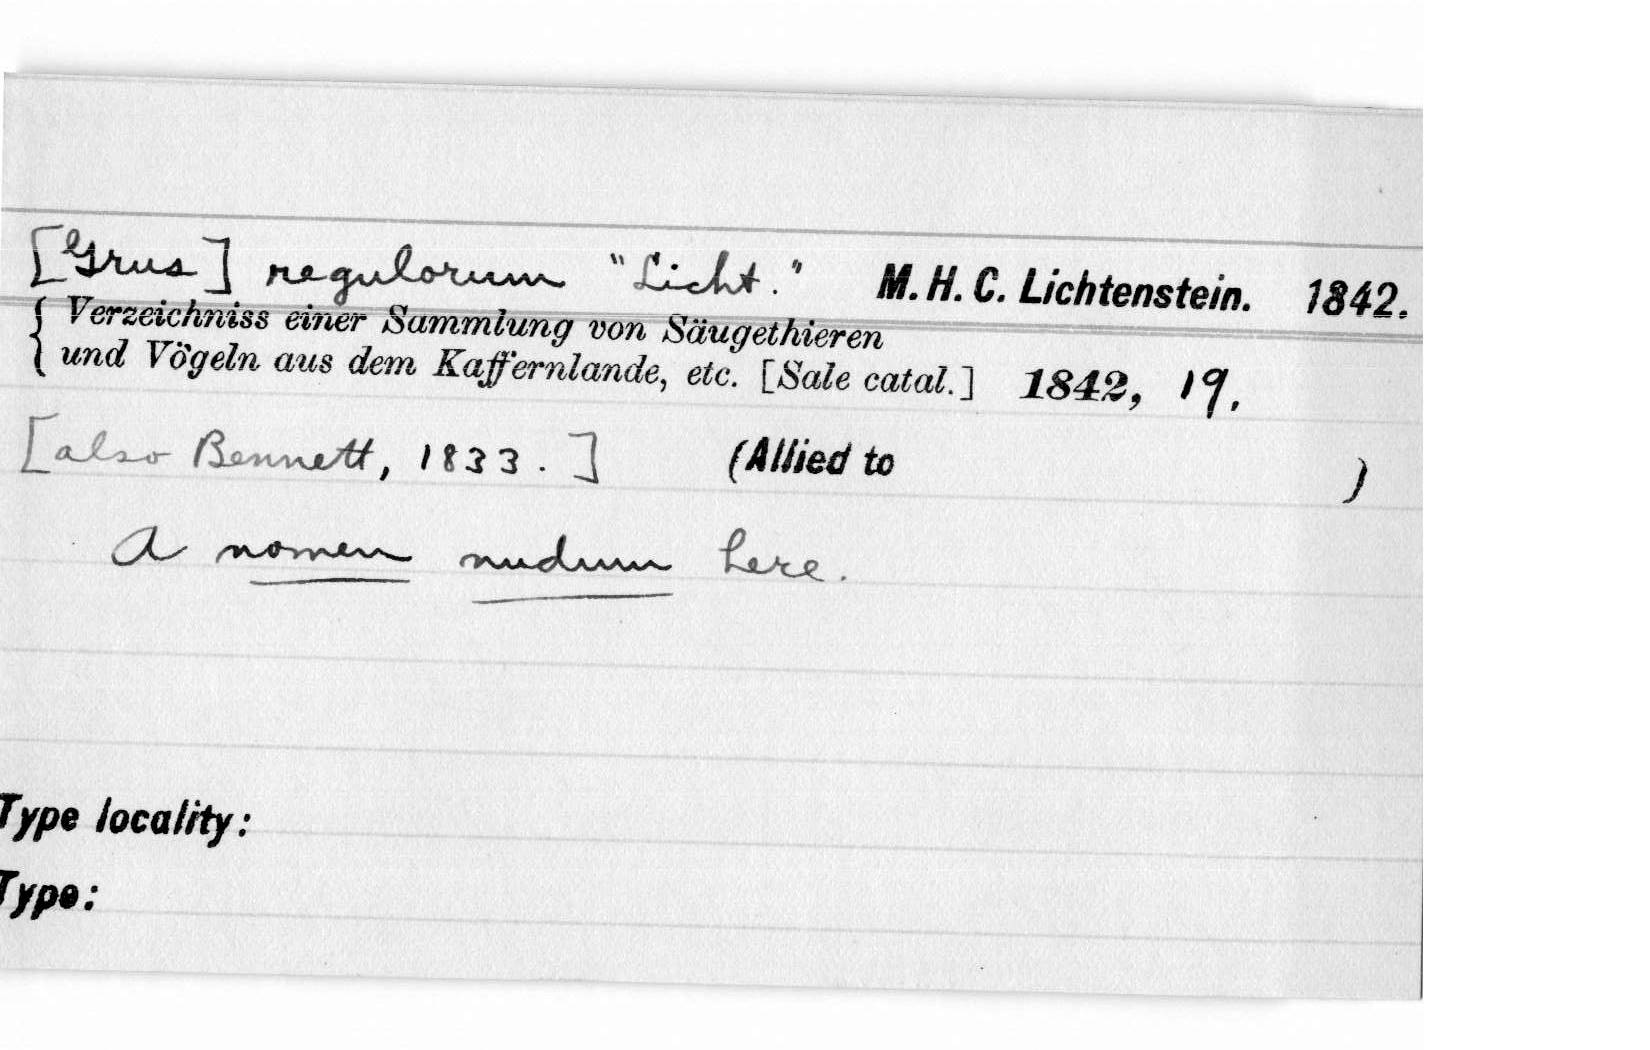 [Grus] regulorum "Licht." M. H. C. Lichtenstein. 1842.
{ Verzeichniss einer Sammlung von Säugethieren
und Vögeln aus dem Kaffernlande, etc. [Sale catal.] 1842, 19.
[also Bennett, 1833.] (Allied to )
A nomen nudum here.
Type locality:
Type: